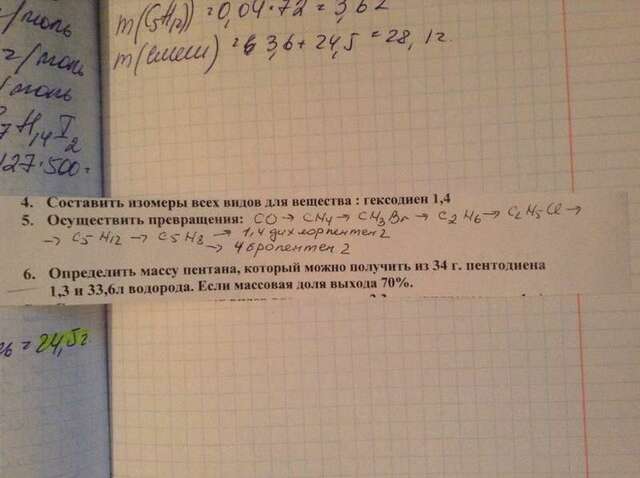 /моль
m(C5H12) = 0,04·72 = 3,6г
г/моль
m(смеси) = 3,6 + 24,5 = 28,1г.
/моль
7H14I2
127·500=
4. Составить изомеры всех видов для вещества : гексодиен 1,4
5. Осуществить превращения: CO → CH4 → CH3Br → C2H6 → C2H5Cl →
→ C5H12 → C5H8 → 1,4 дихлорпентен 2
→ 4 бропентен 2
6. Определить массу пентана, который можно получить из 34 г. пентодиена
1,3 и 33,6л водорода. Если массовая доля выхода 70%.
= 24,5г